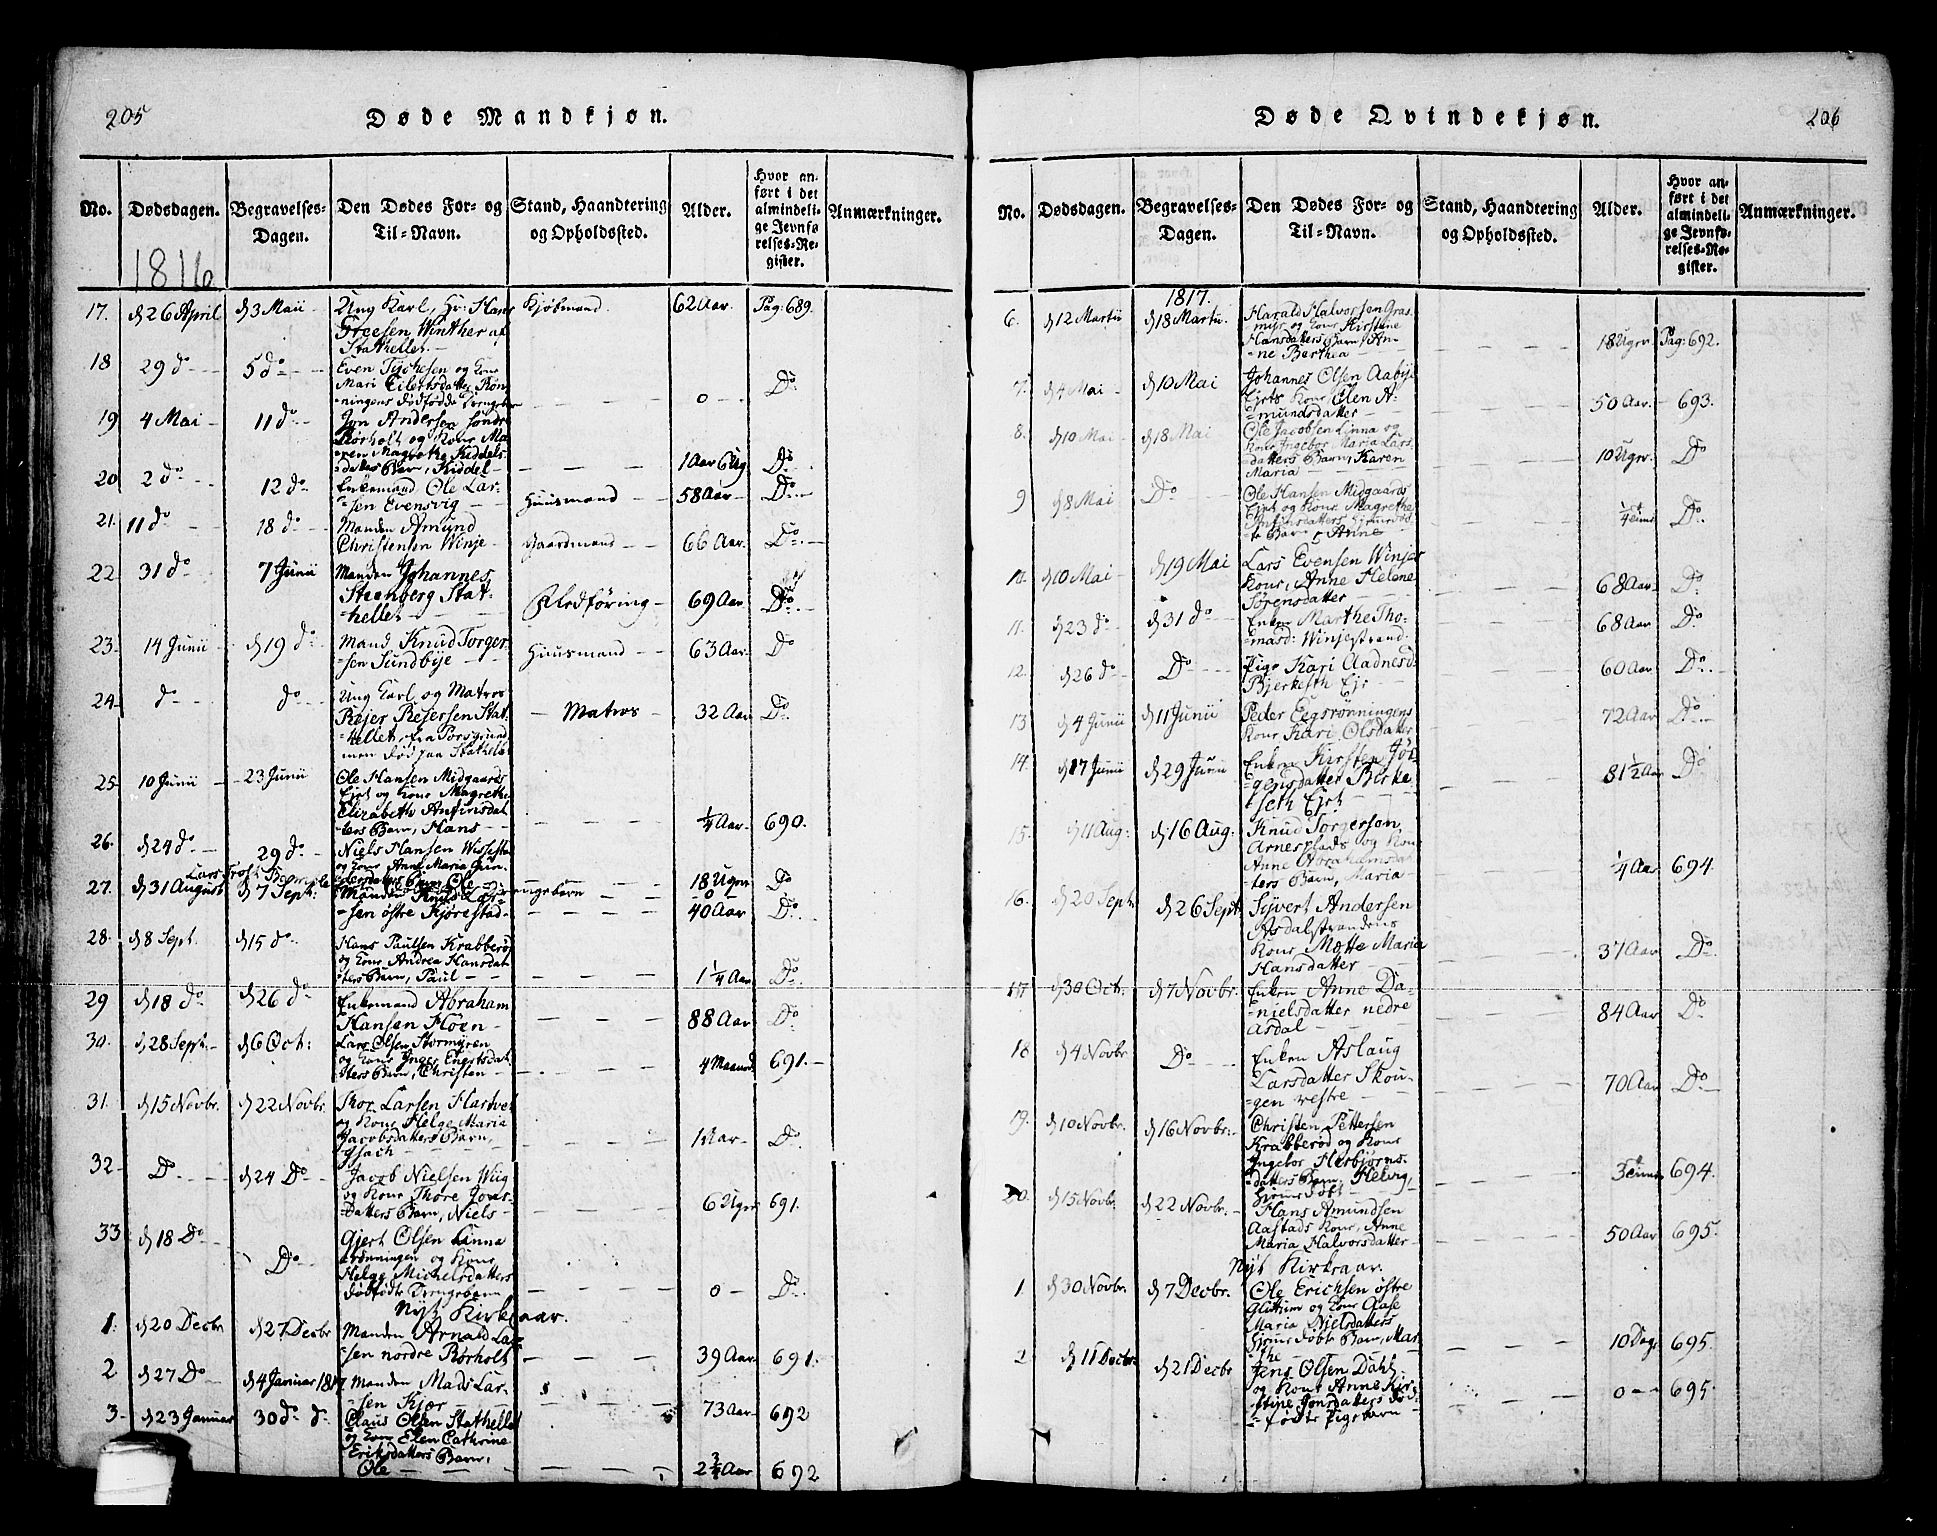 205
Døde Mandkjøn.
No.
Dødsdagen.
Begravelses-
Dagen.
Den Dødes For- og
Til-Navn.
Stand, Haandtering
og Opholdssted.
Alder.
Hvor an-
ført i det
almindeli-
ge Jevnfø-
relses-Re-
gister.
Anmærkninger.
1816
17. d 26 April d 3 Maii Ung Karl, Hr: Hans Kjøbmand 62 Aar. Pag: 689.
Winther af
Stathellet.
18 29 do 5 do Even
Mari Eilertsdatter Røn-
ningens dødfødde Drengebarn 0 Do
19 4 Mai 11 do Jon Andersen søndre
Rørholt og Kone Ma-
ren Magrethe Kiddels-
datters Barn, Kiddel 1 Aar 6 Ug Do
20 2 do 12 do Enkemand Ole Lar-
sen Evensvig Huusmand 58 Aar Do
21. 11 do 18 do Manden Amund
Christensen Winje Gaardmand 66 Aar. Do
22 31 do 7 Junii Manden Johannes
Steenberg Stat-
hellet Fledføring 69 Aar Do
23. 14 Junii d 19 do Mand Knud Torger-
sen Sundbye Huusmand 63 Aar. Do
24 do do Ung Karl og Matros
Rejer Rejersen Stat-
hellet, fra Porsgrund
men død paa Stathelle Matros 32 Aar Do
25 10 Junii 23 Junii Ole Hansen Midgaards
Ejet og Kone Magrethe
Elizabeth Antinsdat-
ters Barn, Hans 1/4 Aar 690.
26. d 24 do 29 do Niels Hansen
og Kone Anne Maria
Barn, Ole 18 Uger Do
Lars
27. d 31 August d 7 Sept: Manden Lar- Drengebarn 0
sen østre Kjørestad 40 Aar Do
28. d 8 Sept. d 15 do Hans Paulsen Krabberø
og Kone Andrea Hansdat-
ters Barn, Paul 1 1/4 Aar Do
29 d 18 do d 26 do Enkemand Abraham
Hansen Hoen 88 Aar Do
30. d 28 Sept. d 6 Oct: Lars Olsen Stormyren
og Kone Inger Engertsdat-
ters Barn, Christen 4 Maaned 691.
31. d 15 Novbr. d 22 Novbr. Thor Larsen Hartvei
og Kone Helge Maria
Jacobsdatters Barn,
Isach 1 Aar Do
32 Do d 24 Do Jacob Nielsen Wiig
og Kone Thore Jons-
datters Barn, Niels 6 Uger 691.
33 d 18 Do Do Gjert Olsen Linna
ørønningen og Kone
Helge Michelsdatters
dødfødte Drengebarn 0 Do
Nyt Kirkeaar.
1. d 20 Decbr d 27 Decbr Manden Arnald Lar-
sen nordre Rørholt 39 Aar 691.
2 d 27 Do d 4 Januar 1817 Manden Mads Lar-
sen Kjær 73 Aar 692
3. d 23 Januar 30 do do Claus Olsen Stathellet
og Kone Elen Cathrine
Eriksdatters Barn,
Ole 2 3/4 Aar 692
206
Døde Qvindekjøn.
No.
Dødsdagen.
Begravelses-
Dagen.
Den Dødes For- og
Til-Navn.
Stand, Haandtering
og Opholdssted.
Alder.
Hvor an-
ført i det
almindeli-
ge Jevnfø-
relses-Re-
gister.
Anmærkninger.
1817.
6. d 12 Martii d 18 Martii. Harald Halvorsen Gras-
myr og Kone Kirstene
Hansdatters Barn, An-
ne Berthea 18 Uger. Pag: 692.
7. d 4 Mai d 10 Mai Johannes Olsen Aabye
Ejets Kone Elen A-
mundsdatter 50 Aar. 693.
8. d 10 Mai d 18 Mai Ole Jacobsen Linna og
Kone Ingebor Maria Lars-
datters Barn, Karen
Maria 10 Uger. Do
9 d 8 Mai Do Ole Hansen Midgaards
Ejet og Kone Magrethe
Antinsdatters hjemmedøb-
te Barn, Anne 1/4 Do
10. d 10 Mai d 19 Mai Lars Evensen Winjes
Kone, Anne Helene
Sørensdatter 68 Aar Do
11. d 23 do d 31 do Enken Marthe Tho-
masd: Winjestrand. 68 Aar Do
12. d 26 do Do Pige Kari Aadnesd:
Bjerkseth Ejr 60 Aar Do
13 d 4 Junii d 11 Junii Peder Eegsrønningens
Kone Kari Olsdatter 72 Aar Do
14. d 17 Junii d 29 Junii Enken Kirsten Jør-
gensdatter Birke-
seth Ejet 81 1/2 Aar Do
15. d 11 Aug: d 16 Aug: Knud Torgersøn,
Arneplads og Kone
Anne Abrahamsdat-
ters Barn, Maria 1/4 Aar 694.
16. d 20 Sept. d 26 Sept. Syvert Andersen
Asdalstrandens
Kone Mætte Maria
Hansdatter 37 Aar Do
17 d 30 Oct: d 7 Novbr. Enken Anne Da-
nielsdatter nedre
Asdal 84 Aar Do
18 d 4 Novbr Do Enken Aslaug
Larsdatter Skou-
gen vestre 70 Aar Do
19. d 10 Novbr. d 16 Novbr: Christen Pettersen
Krabberød og Kone
Ingebor Herbjørns-
datters Barn, Helvig,
hjemmedøbt 3 694.
20. d 15 Novbr. d 22 Novbr. Hans Amundsen
Aastads Kone, Anne
Maria Halvorsdatter 50 Aar 695.
Nyt Kirkeaar.
1. d 30 Novbr. d 7 Decbr. Ole Erichsen østre
Glittrim og Kone Aase
Maria Nielsdatters
hjemmedøbte Barn, Mar-
the 10 Dage 695.
2. d 11 Decbr. d 21 Decbr Jens Olsen Dahl
og Kone Anne Kir-
stine Jonsdatters død-
fødte Pigebarn 0 695.